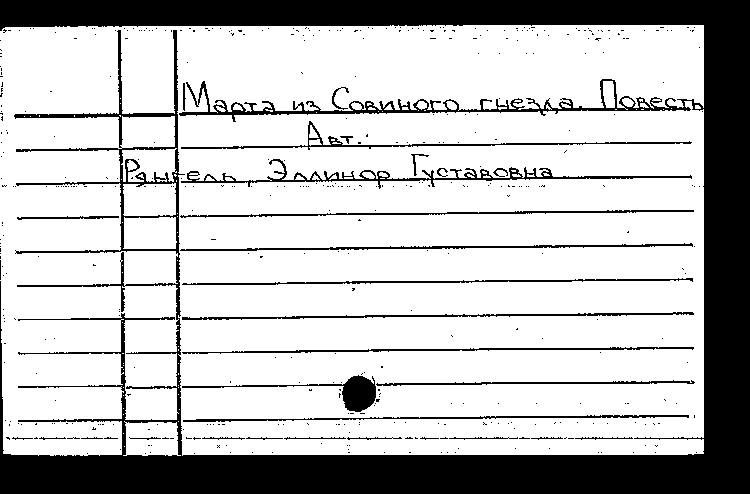 Марта из Совиного гнезда. Повесть
Авт.:
Рянгель, Эллинор Густавовна